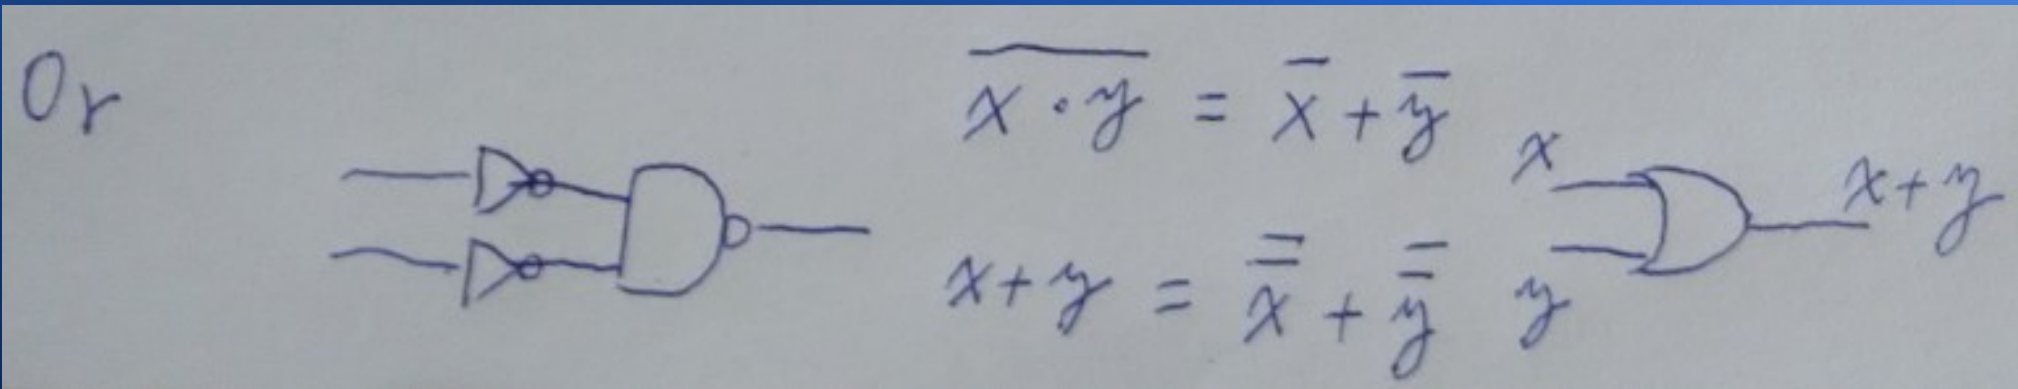 Or
x̅ ̅·̅ ̅y̅ = x̅ + y̅
x + y = x̿ + y̿
x
y
x+y